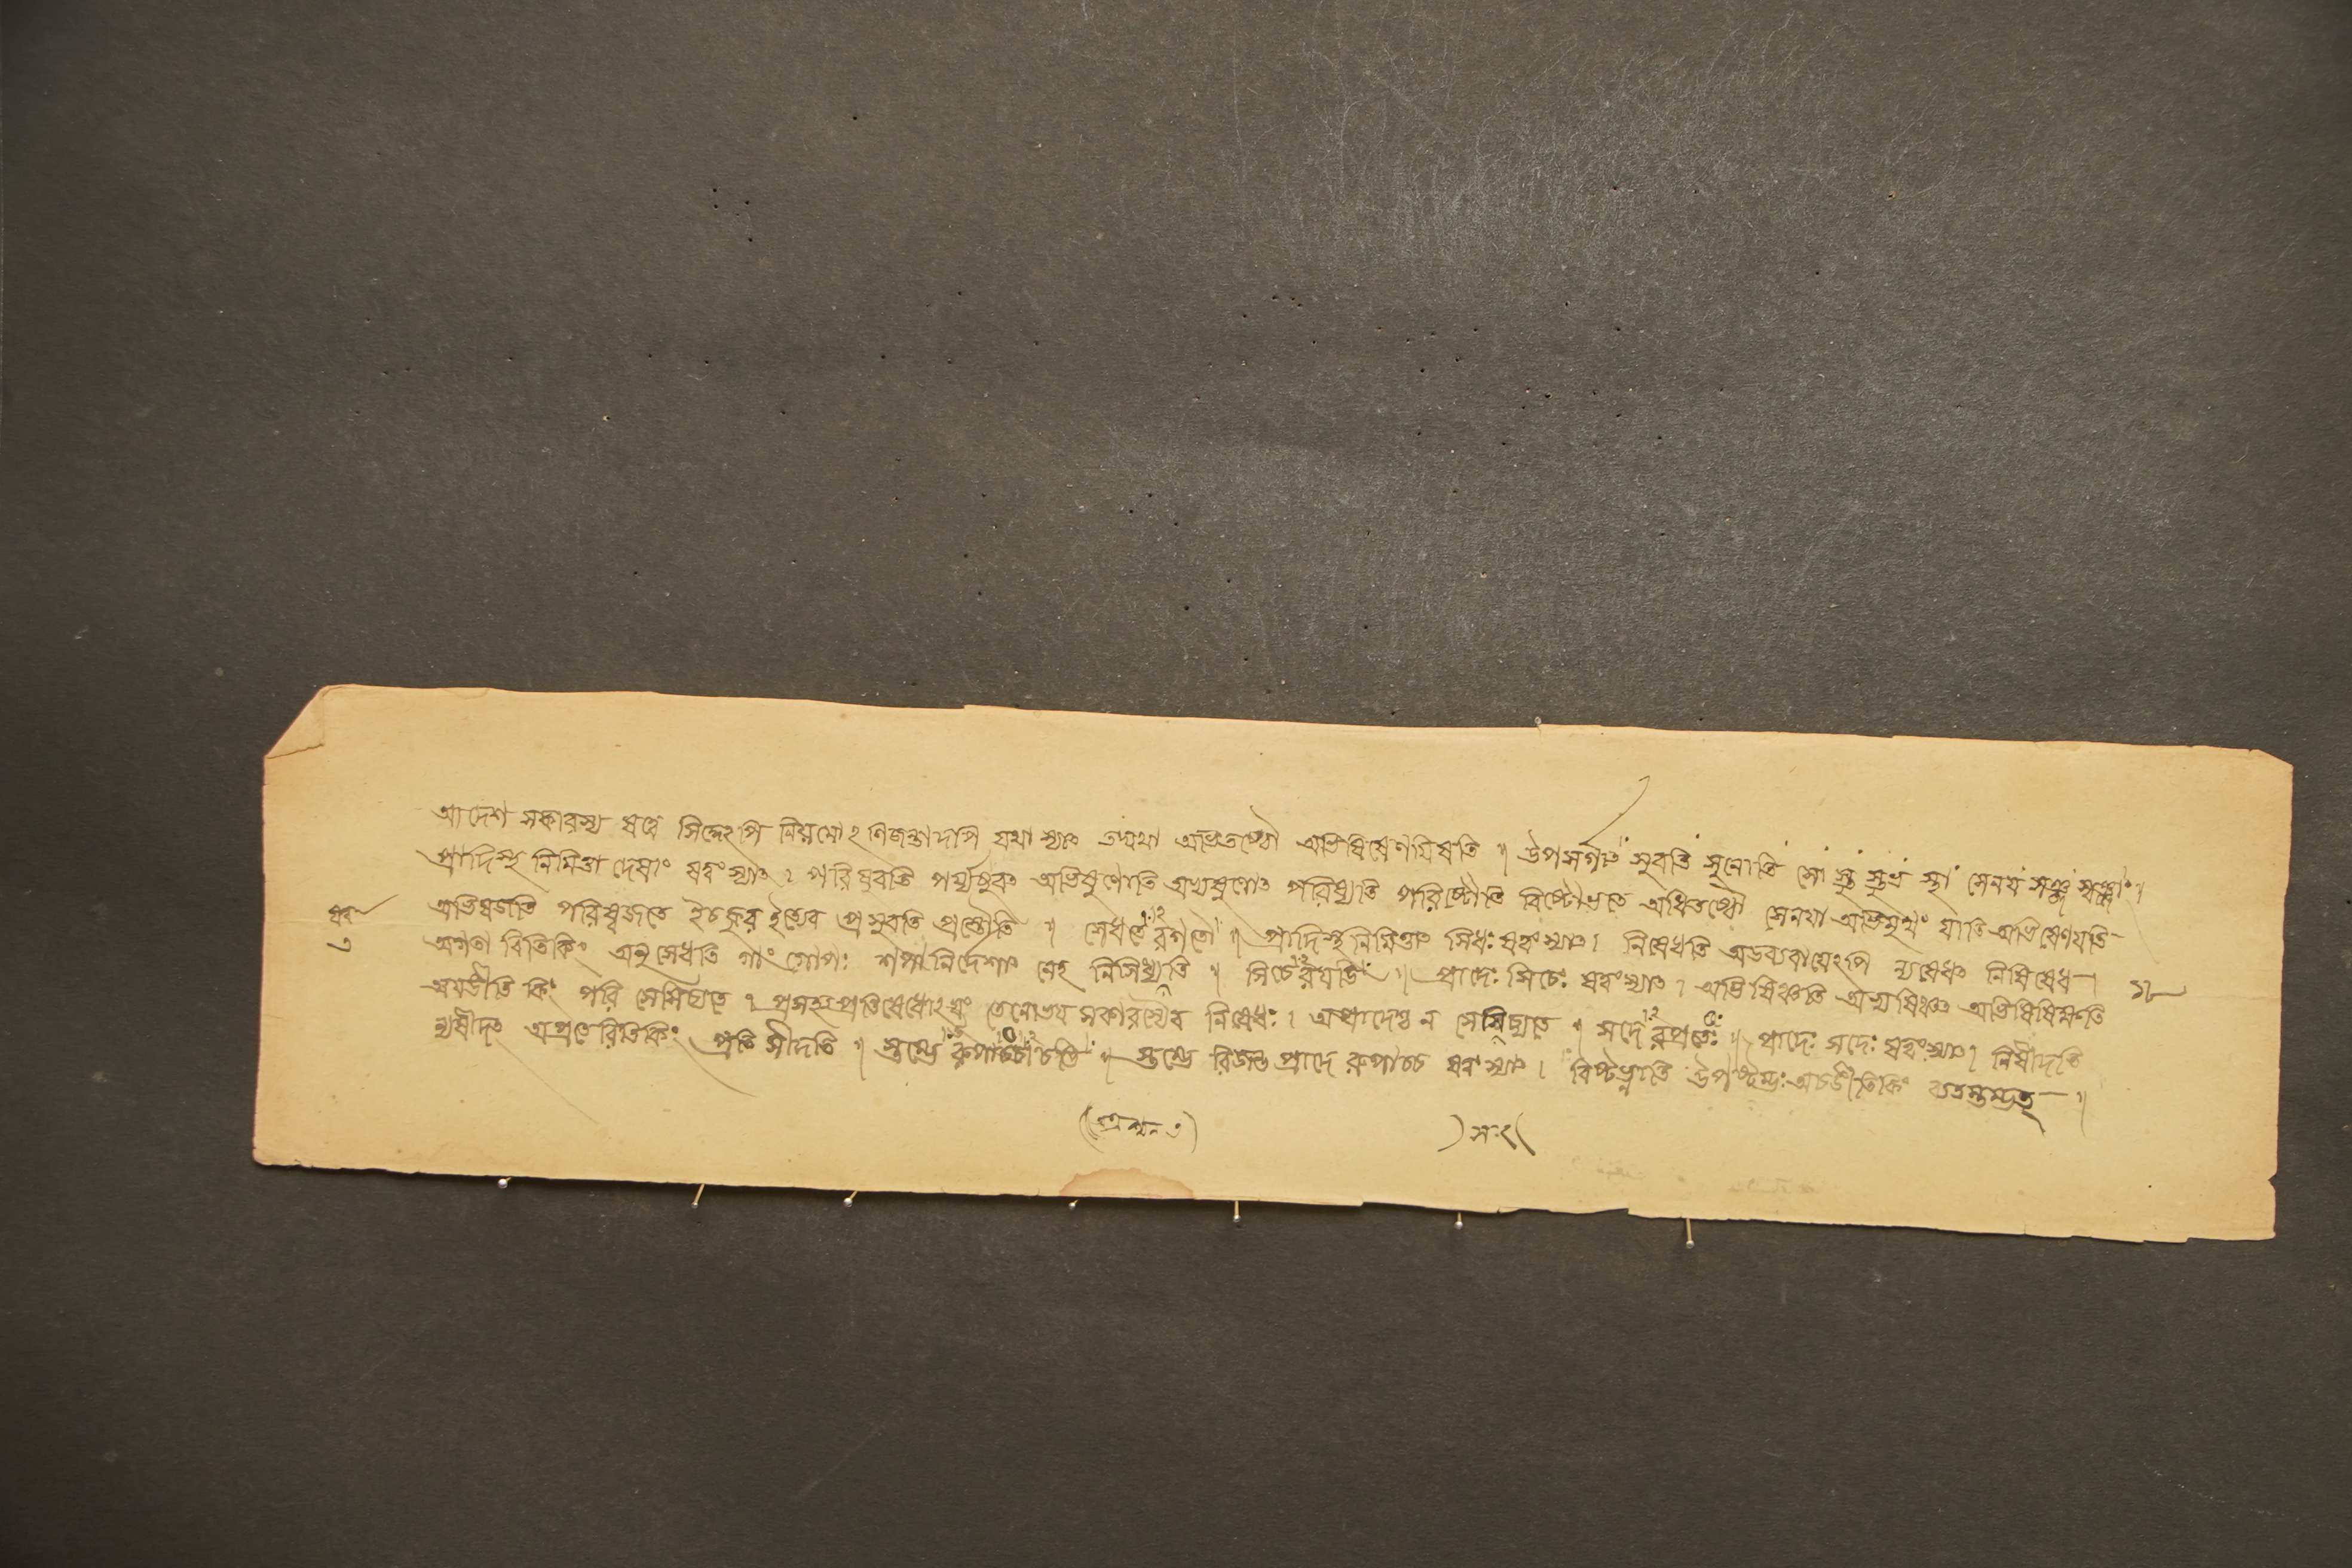 আদেশ সকারস্য ষত্বে সিদ্ধেঽপি নিয়মোঽ নিজন্তাদপি যথা স্যাৎ তদ্যথা অভিতষ্ঠৌ অভিষিষেণযিষতি ॥ উপসর্গাৎ সুবতি সুনোতি সো স্তু স্তুভ স্থা সেনয সঞ্জ স্বঞ্জাং ॥
প্রাদিস্থ নিমিত্তা দেষাং ষত্বং স্যাৎ । পরিষুবতি পর্য্যষুবৎ অভিষুণোতি অভ্যষুণোৎ পরিষ্যতি পরিষ্টৌতি বিষ্টোভতে অধিতষ্ঠৌ সেনযা অভিমুখং যাতি অভিষেণযতি
অভিষজতি পরিষ্বজতে ইত্যেব প্রসুবতি প্রস্তৌতি ॥ সেধতে রগতৌ ॥ প্রাদিস্থ নিমিত্তাৎ সিধঃ ষত্বং স্যাৎ । নিষেধতি অডব্যবাযেঽপি ন্যষেধৎ নিষিষেধ ।
অগতা বিতিকিং অনুসেধতি গাং গোপঃ শপা নির্দেশাৎ নেহ নিসিধ্যতি ॥ সিচে রযঙি ॥ প্রাদেঃ সিচেঃ ষত্বং স্যাৎ । অভিষিঞ্চতি অভ্যষিঞ্চৎ অভিষিষিক্ষতি
অযঙীতি কিং পরি সেসিচ্যতে । প্রসহ্যপ্রতিষেধোঽযং তেনোভয সকারস্যৈব নিষেধঃ । অপ্রাদেশ্চ ন সেসিচ্যতে ॥ সদে রপ্রতেঃ ॥ প্রাদেঃ সদেঃ ষত্বং স্যাৎ । নিষীদতি
ন্যষীদৎ অপ্রতেরিতিকিং প্রতি সীদতি ॥ স্তম্ভে রুপাচ্চাচঙি ॥ স্তম্ভে রিজন্ত প্রাদে রুপাচ্চ ষত্বং স্যাৎ । বিষ্টভ্নাতি উপষ্টম্ভঃ অচঙীতিকিং ব্যতস্তম্ভৎ ॥